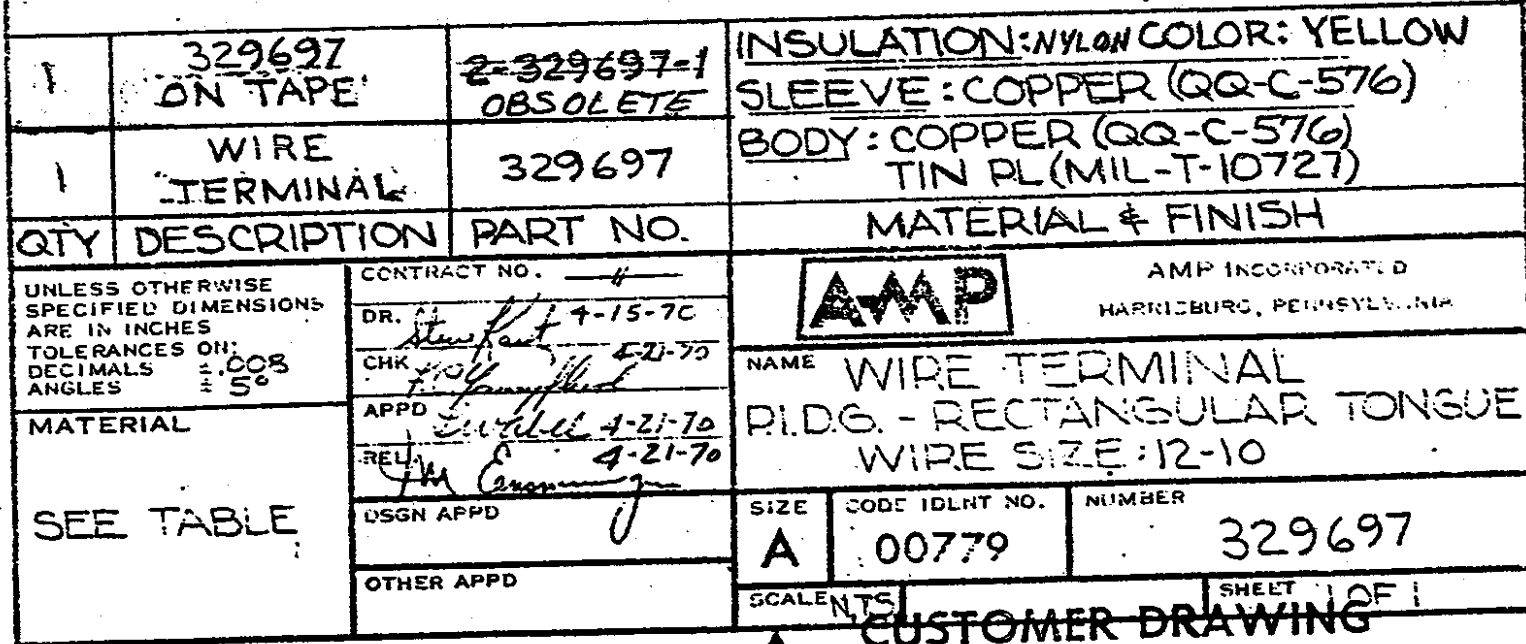 1
329697
ON TAPE
2-329697-1
OBSOLETE
INSULATION: NYLON COLOR: YELLOW
SLEEVE: COPPER (QQ-C-576)
BODY: COPPER (QQ-C-576)
TIN PL (MIL-T-10727)
1
WIRE
TERMINAL
329697
QTY
DESCRIPTION
PART NO.
MATERIAL & FINISH
UNLESS OTHERWISE
SPECIFIED DIMENSIONS
ARE IN INCHES
TOLERANCES ON:
DECIMALS ±.008
ANGLES ± 5°
MATERIAL
SEE TABLE
CONTRACT NO.
DR. 4-15-70
CHK 4-21-70
APPD 4-21-70
REL. 4-21-70
DSGN APPD
OTHER APPD
AMP
AMP INCORPORATED
HARRISBURG, PENNSYLVANIA
NAME WIRE TERMINAL
P.I.D.G. - RECTANGULAR TONGUE
WIRE SIZE: 12-10
SIZE
A
CODE IDENT NO.
00779
NUMBER
329697
SCALE N.T.S.
SHEET 1 OF 1
CUSTOMER DRAWING